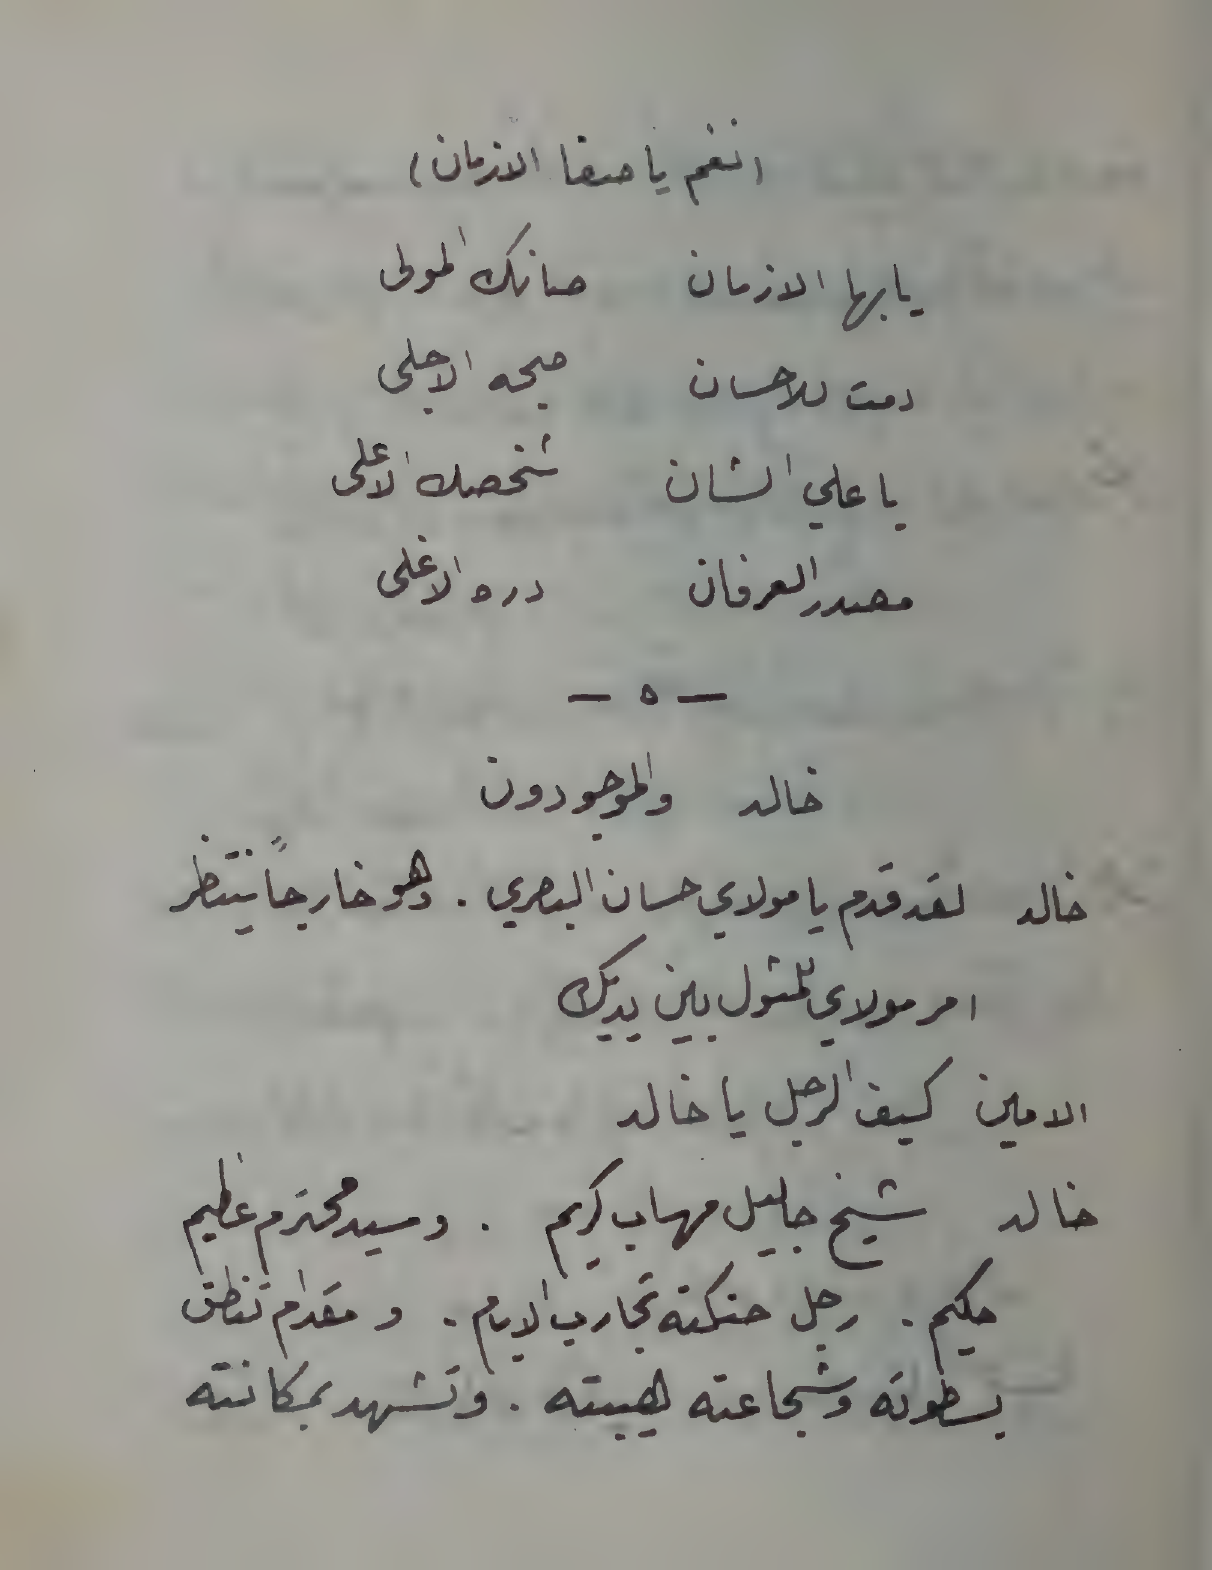 (نغم يا صفا الازمان)
يا بها الازمان صانك المولى
دمت للاحسان صبحه الاجلى
يا علي الشان شخصك الاعلى
مصدر العرفان دره الاغلى
— ٥ —
خالد والموجودون
خالد لقد قدم يا مولاي حسان البصري . وهو خارجاً ينتظر
امر مولاي للمثول بين يديك
الامين كيف الرجل يا خالد
خالد شيخ جليل مهاب كريم . وسيد محترم عظيم
حكيم . رجل حنكته تجارب الايام . و مقدام تنطق
بسطوته وشجاعته هيبته . وتشهد بمكانته